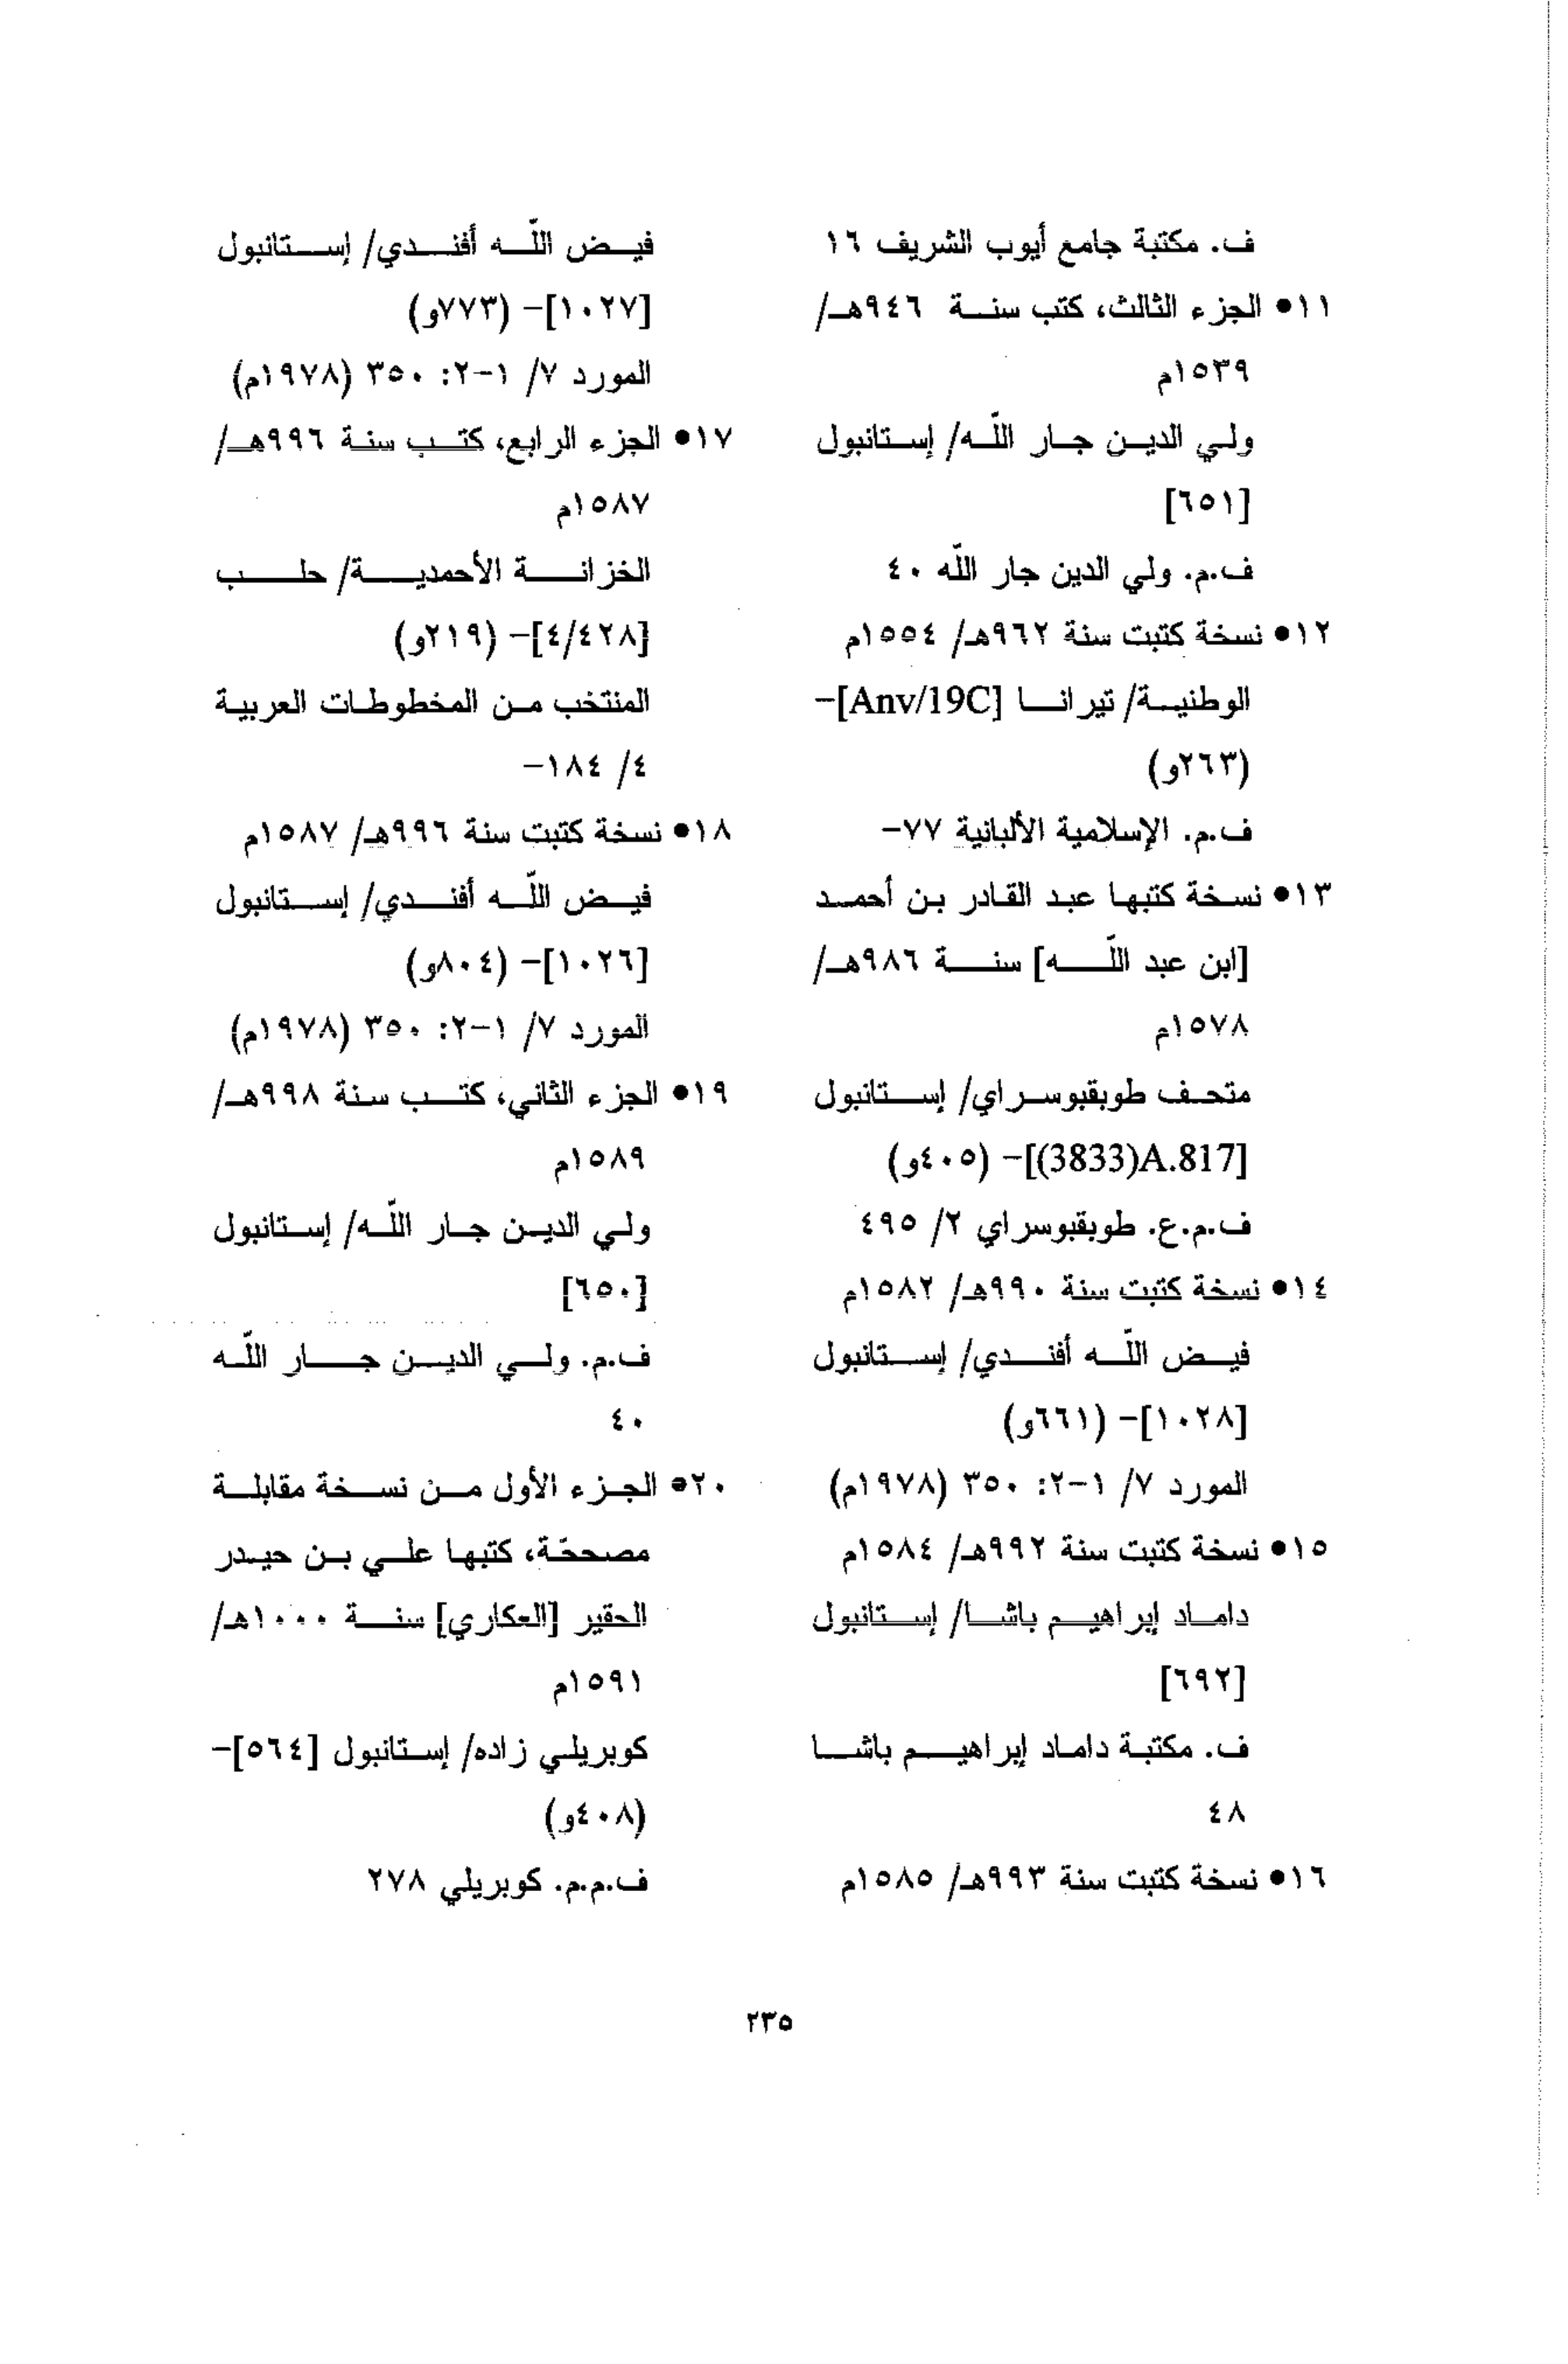 ف. مكتبة جامع أيوب الشريف ١٦
١١• الجزء الثالث، كتب سنة ٩٤٦هـ/
١٥٣٩م
ولي الدين جار اللّه/ إستانبول
[٦٥١]
ف.م. ولي الدين جار اللّه ٤٠
١٢• نسخة كتبت سنة ٩٦٢هـ/ ١٥٥٤م
الوطنية/ تيرانا [Anv/19C]-
(٢٦٣و)
ف.م. الإسلامية الألبانية ٧٧-
١٣• نسخة كتبها عبد القادر بن أحمد
[ابن عبد اللّه] سنة ٩٨٦هـ/
١٥٧٨م
متحف طوبقبوسراي/ إستانبول
[3833)A.817)]- (٤٠٥و)
ف.م.ع. طوبقبوسراي ٢/ ٤٩٥
١٤• نسخة كتبت سنة ٩٩٠هـ/ ١٥٨٢م
فيض اللّه أفندي/ إستانبول
[١٠٢٨]- (٦٦١و)
المورد ٧/ ١-٢: ٣٥٠ (١٩٧٨م)
١٥• نسخة كتبت سنة ٩٩٢هـ/ ١٥٨٤م
داماد إبراهيم باشا/ إستانبول
[٦٩٢]
ف. مكتبة داماد إبراهيم باشا
٤٨
١٦• نسخة كتبت سنة ٩٩٣هـ/ ١٥٨٥م
فيض اللّه أفندي/ إستانبول
[١٠٢٧]- (٧٧٣و)
المورد ٧/ ١-٢: ٣٥٠ (١٩٧٨م)
١٧• الجزء الرابع، كتب سنة ٩٩٦هـ/
١٥٨٧م
الخزانة الأحمدية/ حلب
[٤/٤٢٨]- (٢١٩و)
المنتخب من المخطوطات العربية
٤/ ١٨٤-
١٨• نسخة كتبت سنة ٩٩٦هـ/ ١٥٨٧م
فيض اللّه أفندي/ إستانبول
[١٠٢٦]- (٨٠٤و)
المورد ٧/ ١-٢: ٣٥٠ (١٩٧٨م)
١٩• الجزء الثاني، كتب سنة ٩٩٨هـ/
١٥٨٩م
ولي الدين جار اللّه/ إستانبول
[٦٥٠]
ف.م. ولي الدين جار اللّه
٤٠
٢٠• الجزء الأول من نسخة مقابلة
مصححّة، كتبها علي بن حيدر
الحقير [العكاري] سنة ١٠٠٠هـ/
١٥٩١م
كوبريلي زاده/ إستانبول [٥٦٤]-
(٤٠٨و)
ف.م.م. كوبريلي ٢٧٨
٢٣٥